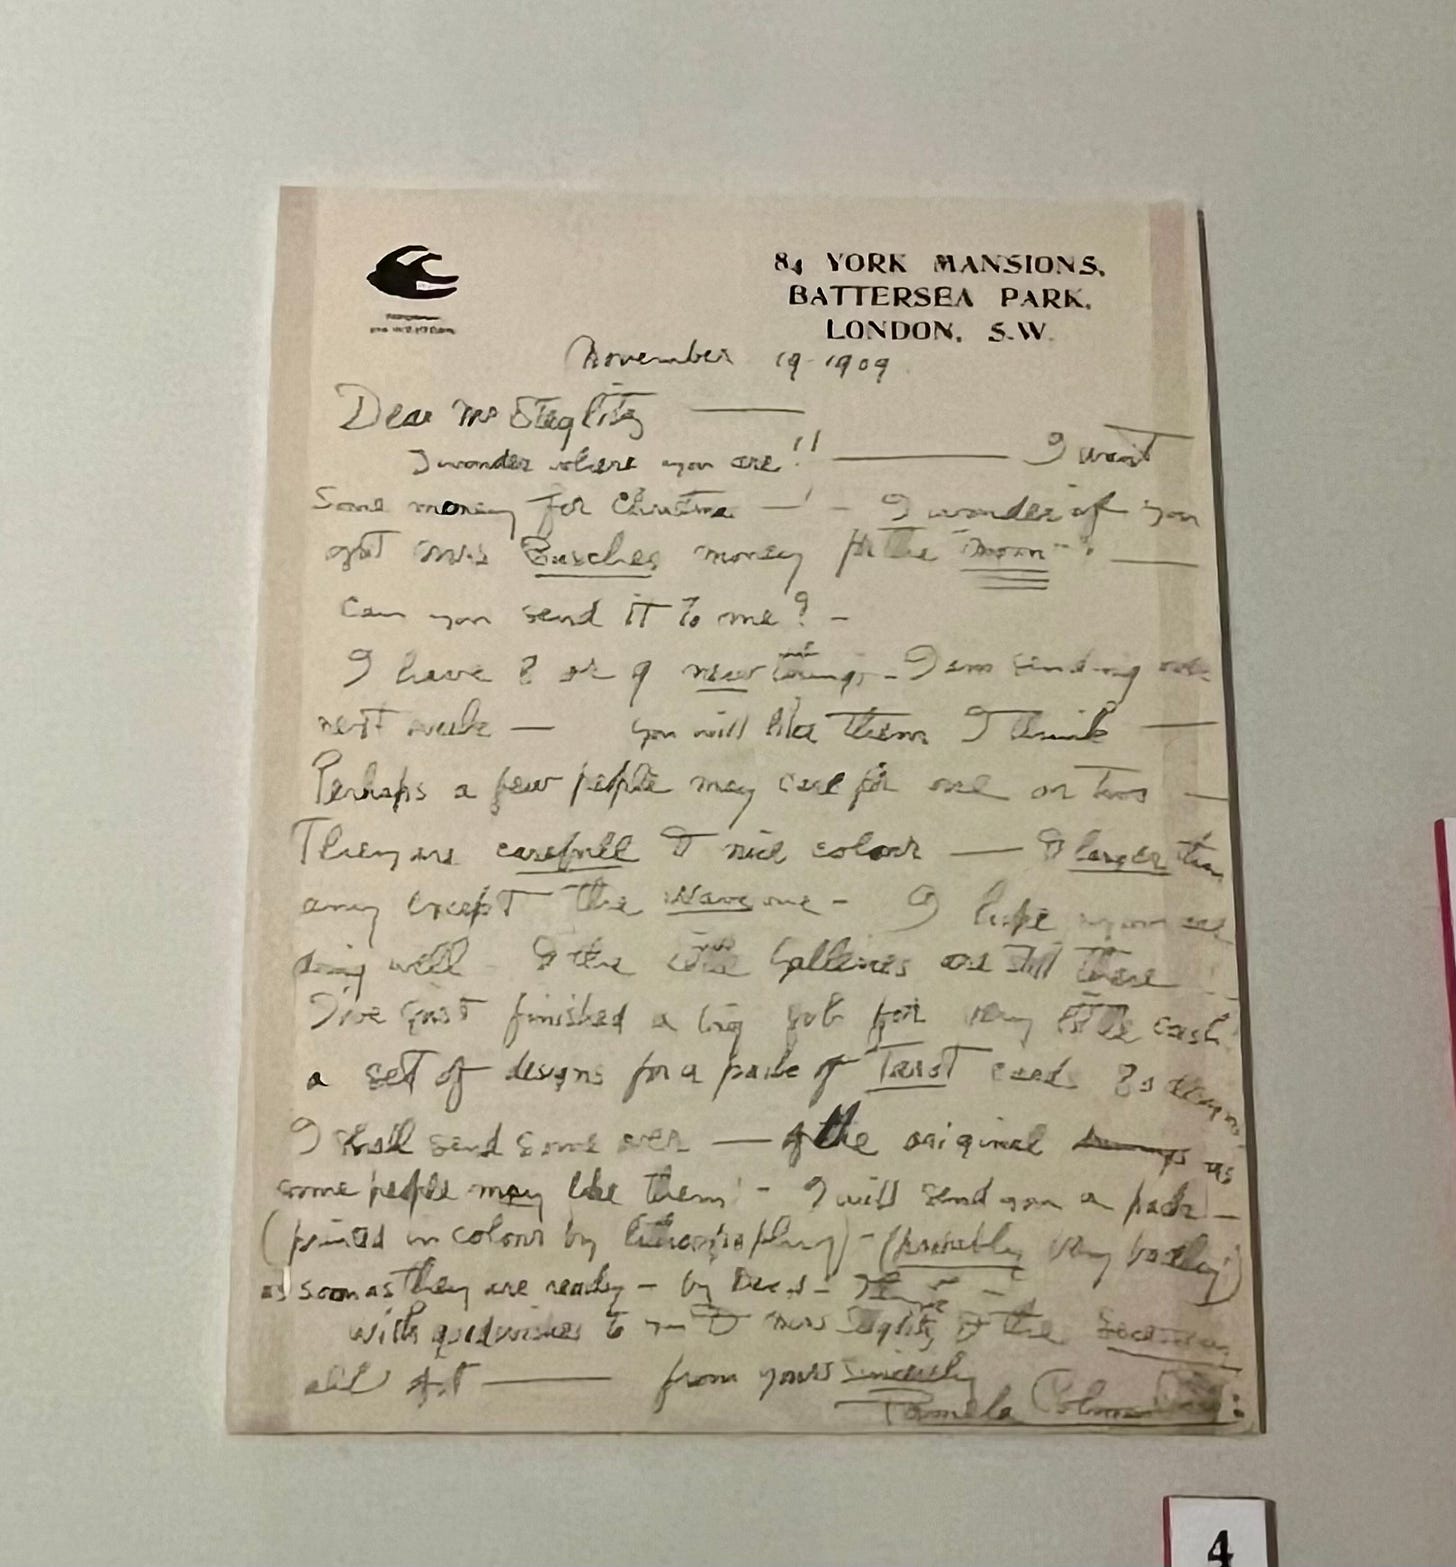 84 YORK MANSIONS,
BATTERSEA PARK.
LONDON, S.W.
November 19-1909
Dear Mr Steglitz ——
I wonder where you are!! —— I want
Some money for Christmas —! - I wonder if you
got Mrs money for the "Moon"? ——
Can you send it to me? -
I have 8 or 9 new things - I am sending
next week — you will like them I think ——
Perhaps a few people may care for one or two —
They are carefull & nice colour —— & larger than
any except the Wave one - I hope you are
doing well - & the little Galleries are still there
I've just finished a big job for very little cash!
a set of designs for a pack of Tarot cards 80 designs
I shall send some over —— of the original as
some people may like them! - I will send you a pack —
(printed in colour by lithography) - (probably very badly)
as soon as they are ready — by Dec. 1 -
With good wishes to you & Mrs Steglitz & the
all Art —— from yours sincerely
Pamela Colman
4